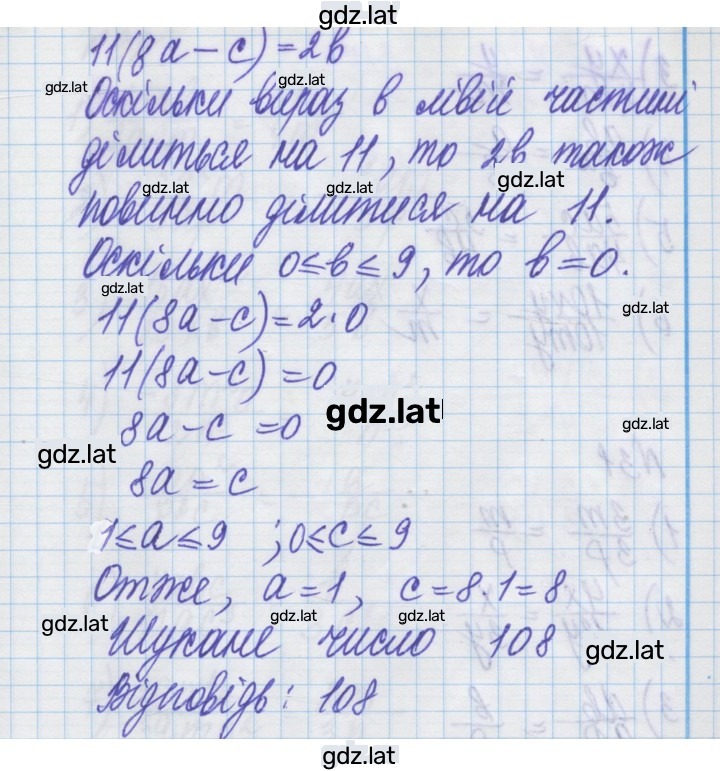 gdz.lat
11(8a-c)=2b
gdz.lat gdz.lat
Оскільки вираз в лівій частині
ділиться на 11, то 2b також
gdz.lat gdz.lat gdz.lat
повинно ділитися на 11.
Оскільки 0≤b≤9, то b=0.
gdz.lat
11(8a-c)=2·0
gdz.lat
11(8a-c)=0
gdz.lat
8a-c=0
gdz.lat
gdz.lat
8a=c
1≤a≤9 ; 0≤c≤9
Отже, a=1, c=8·1=8
gdz.lat gdz.lat gdz.lat
Шукане число 108
gdz.lat
Відповідь: 108
gdz.lat